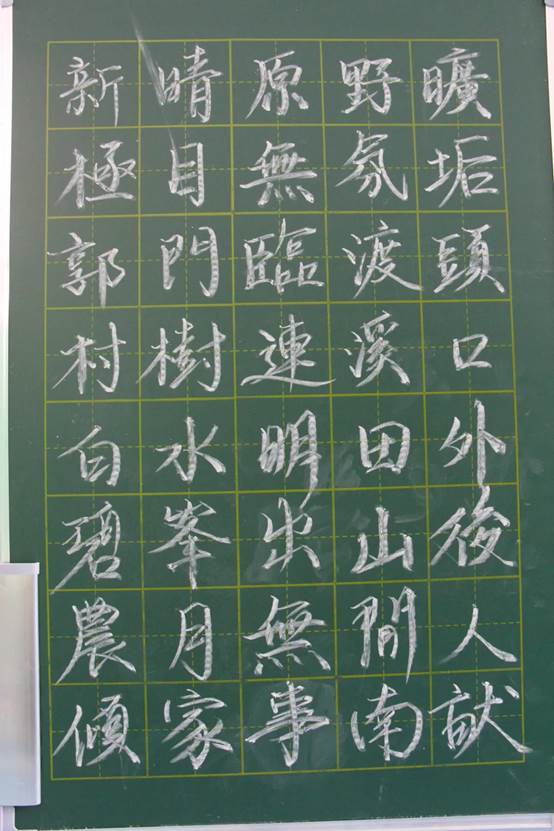 新晴原野曠
極目無氛垢
郭門臨渡頭
村樹連溪口
白水明田外
碧峯出山後
農月無間人
傾家事南畝